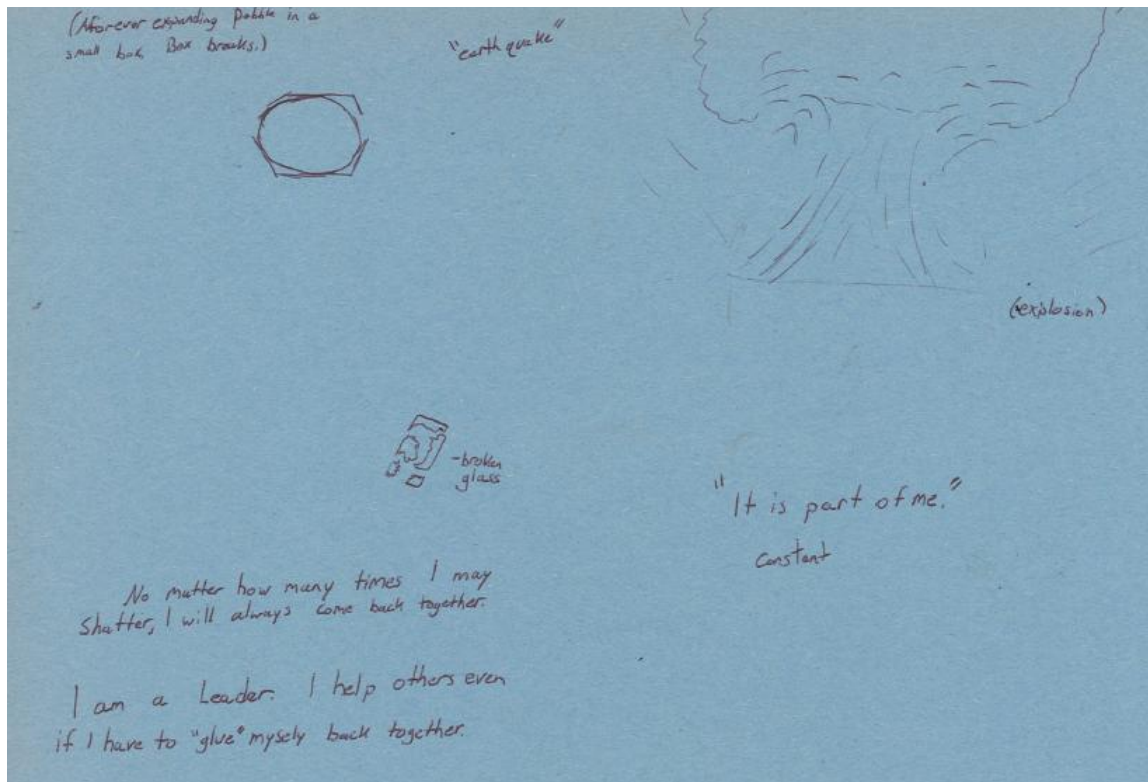 (A forever expanding Pebble in a
small box. Box breaks.)
"earthquake"
(explosion)
-broken
glass
"It is part of me."
Constant
No matter how many times I may
Shatter, I will always come back together.
I am a Leader. I help others even
if I have to "glue" mysely back together.